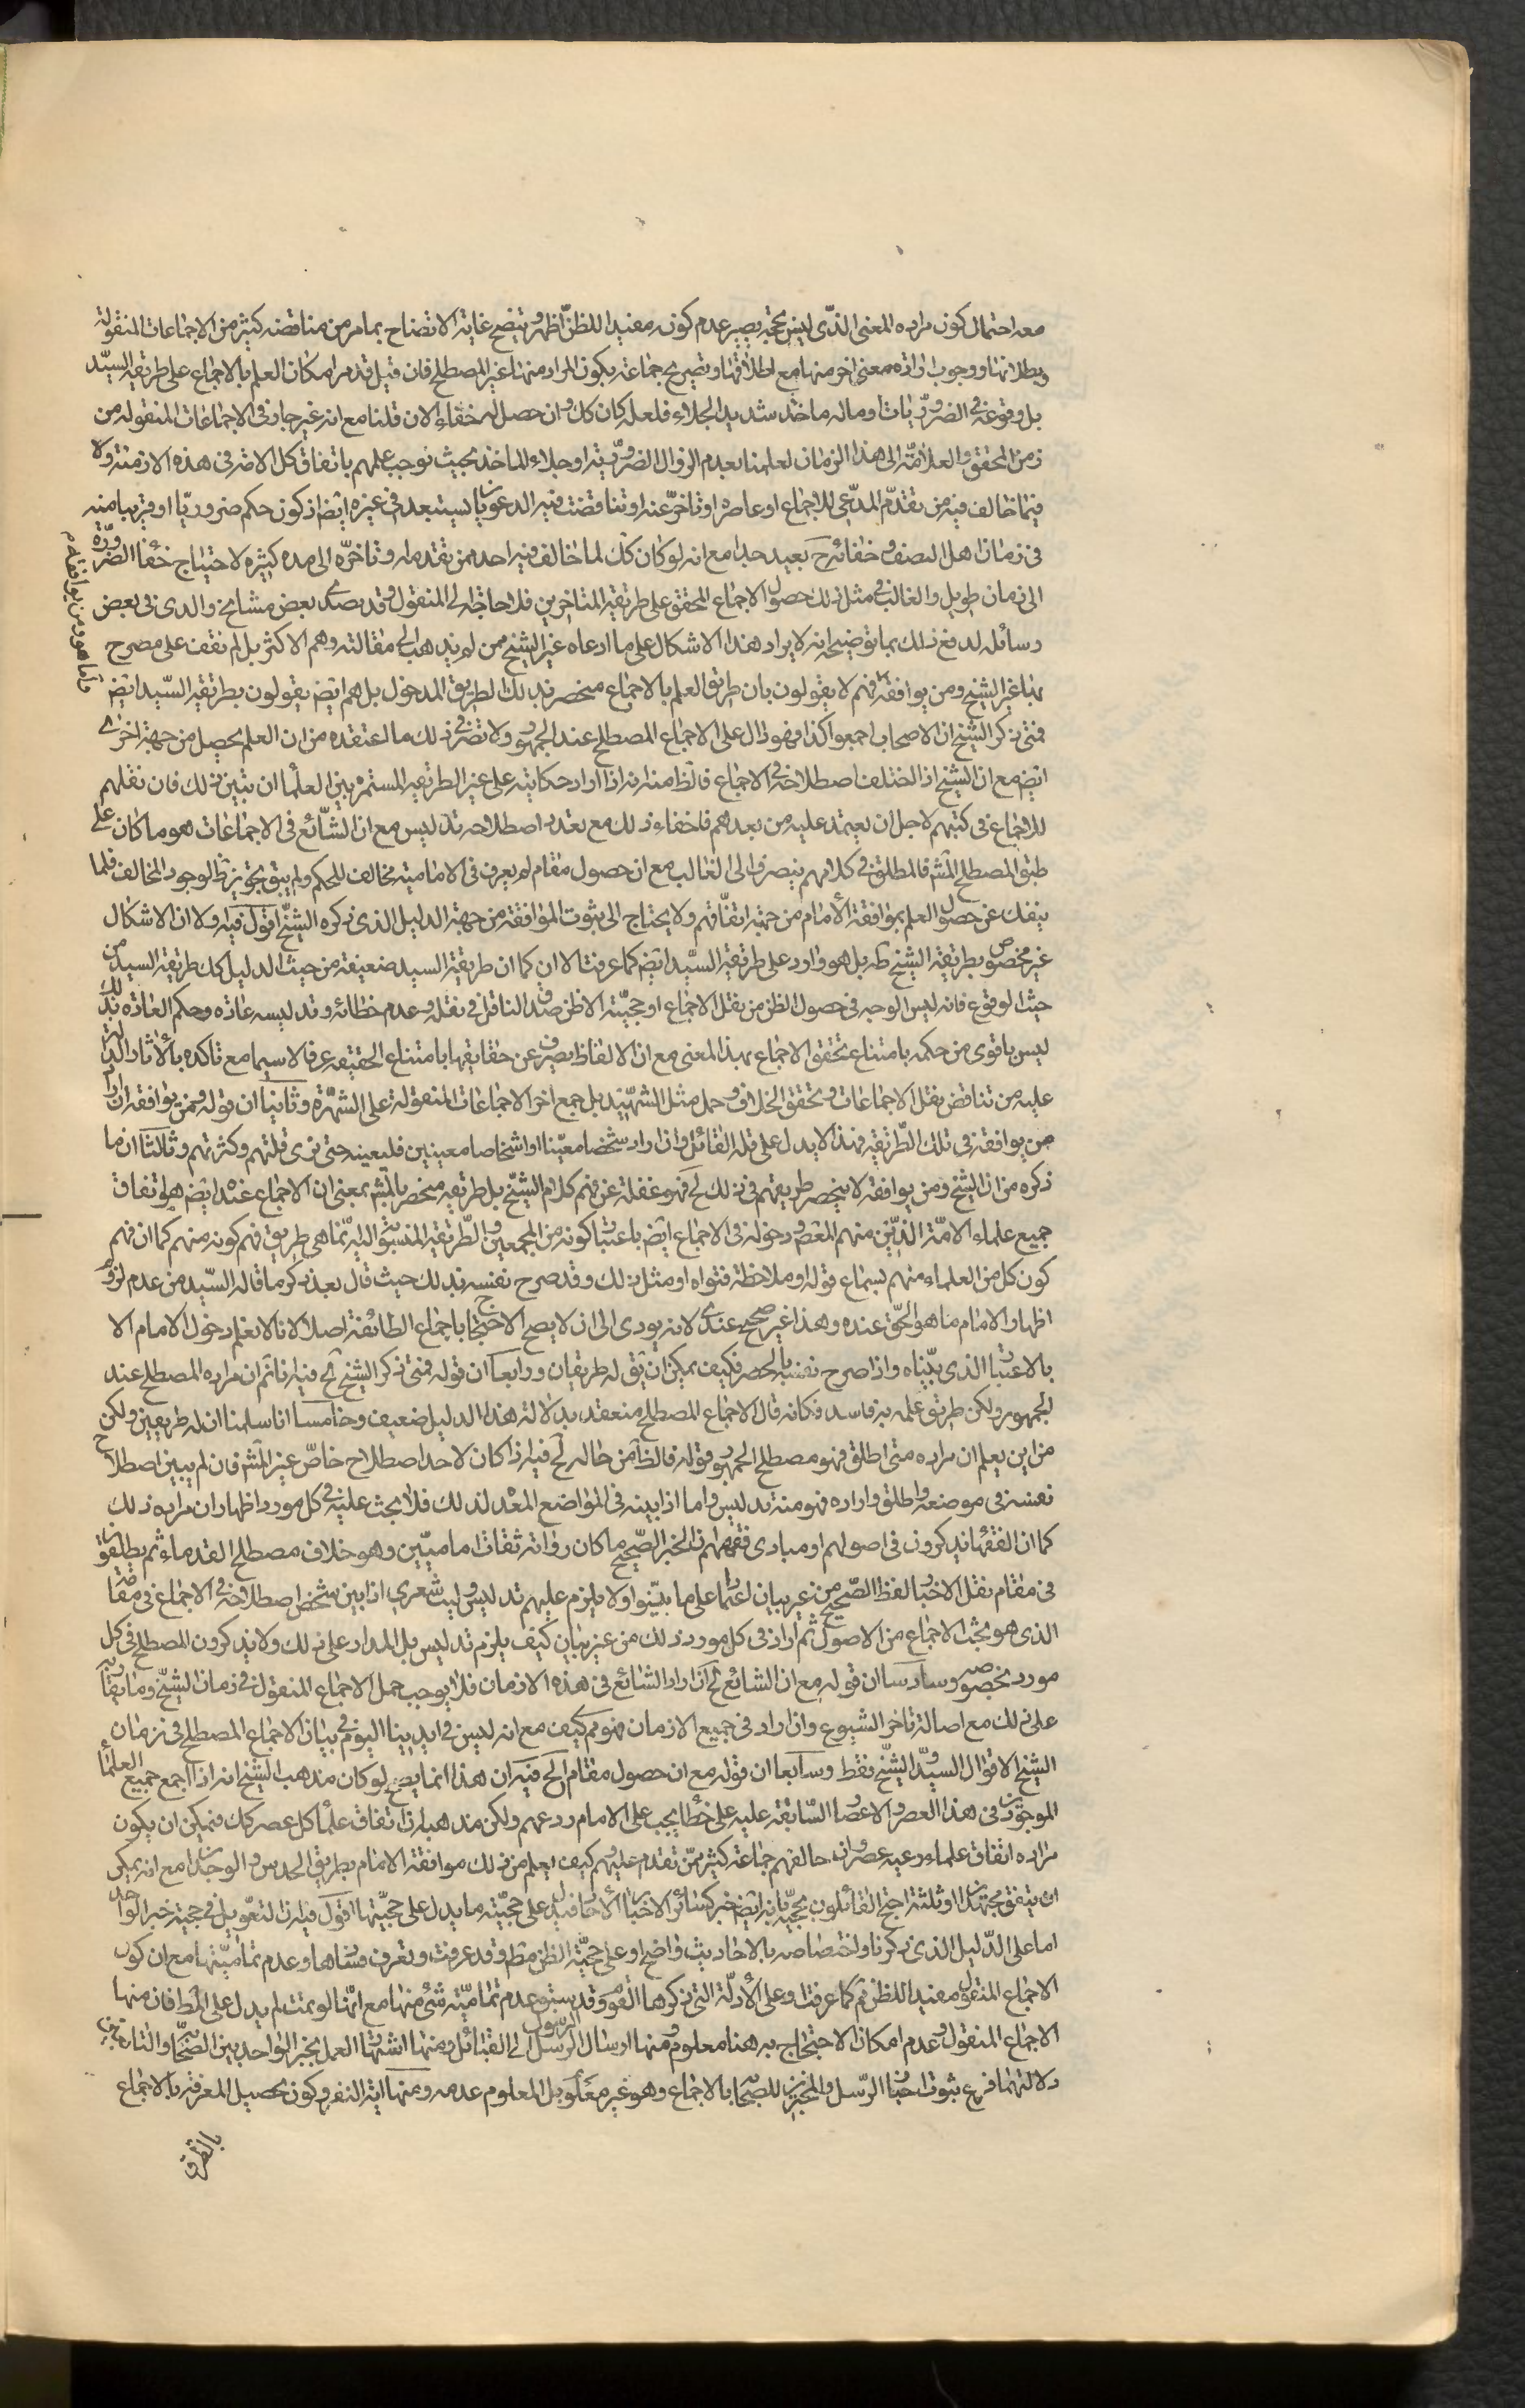 معه احتمال كون مراده المعنى الذى ليس بحجة يصير عدم كونه مفيدا للظن اظهر ويتضح غاية الاتضاح بما مر من مناقضة كثير من الاجماعات المنقولة
وبطلانها ووجوب ارادة معنى اخر منها مع اطلاقها وتصريح جماعة بكون المراد منها غير المصطلح فان قيل قد مر امكان العلم بالاجماع على طريقة السيد
بل وقوعه فى الضروريات وماله ماخذ شديد الجلاء فلعله كان كك وان حصل له خفاء الان قلنا مع انه غير جار فى الاجماعات المنقولة من
زمن المحقق والعلامة الى هذا الزمان لعلمنا بعدم الزوال الضرورية او جلاء الماخذ بحيث يوجب علمهم باتفاق كل الامة فى هذه الازمنة ولا
فيما خالف فيه من تقدم المدعى للاجماع او عاصره او تاخر عنه او تناقضت فيه الدعويان يستبعد فى غيره ايض اذ كون حكم ضروريا او قريبا منه
فى زمان اهل الصنف وخفائه ح بعيد جدا مع انه لو كان كك لما خالف فيه احد ممن تقدمه او تاخره الى مدة كثيرة لاحتياج خفا الضرورة
الى زمان طويل والغالب فى مثل ذلك حصول الاجماع المحقق على طريقة المتاخرين فلا حاجة الى المنقول وقد تصدى بعض مشايخ والدى فى بعض
رسائله لدفع ذلك بما توضيحه انه لا يراد هذا الاشكال على ما ادعاه غير الشيخ ممن لم يذهب الى مقالته وهم الاكثر بل لم نقف على مصرح
بها غير الشيخ ومن يوافقه فهم لا يقولون بان طريق العلم بالاجماع منحصر بذلك الطريق المدخول بل هم ايض يقولون بطريقة السيد ايض
فمتى ذكر الشيخ ان الاصحاب اجمعوا كذا فهو دال على الاجماع المصطلح عند الجمهور ولا تضر فى ذلك ما اعتقده من ان العلم يحصل من جهة اخرى
ايض مع ان الشيخ اذا اختلف اصطلاحه فى الاجماع فالظ منه انه اذا اراد حكايته على غير الطريقة المستمرة بين العلما ان يبين ذلك فان نقلهم
للاجماع فى كتبهم لاجل ان يعتمد عليه من بعدهم فاخفاء ذلك مع تعدد اصطلاحه تدليس مع ان الشائع فى الاجماعات هو ما كان على
طبق المصطلح المش فالمطلق فى كلامهم ينصرف الى الغالب مع ان حصول مقام لم يعرف فى الامامية مخالف للحكم ولم يبق تجويز ظ لوجود المخالف قلما
ينفك عن حصول العلم بموافقة الامام من جهة اتفاقهم ولا يحتاج الى ثبوت الموافقة من جهة الدليل الذى ذكره الشيخ اقول فيه اولا ان الاشكال
غير مخصوص بطريقة الشيخ ره بل هو وارد على طريقة السيد ايض كما عرفت الان كما ان طريقة السيد ضعيفة من حيث الدليل كك طريقة السيد من
حيث الوقوع فانه ليس الوجه فى حصول الظن من نقل الاجماع او حجيته الا ظن صدق الناقل فى نقله وعدم خطائه وتدليسه عادة وحكم العادة بذلك
ليس باقوى من حكمه بامتناع تحقق الاجماع بهذا المعنى مع ان الالفاظ يصرف عن حقايقها بامتناع الحقيقة عرفا لا سيما مع تاكده بالاثار الدالة
عليه من تناقض نقل الاجماعات وتحقق الخلاف وحمل مثل الشهيد بل جمع اخر الاجماعات المنقولة على الشهرة وثانيا ان قوله ومن يوافقه ان اراد
من يوافقه فى تلك الطريقة فهذا لا يدل على قلة القائل وان اراد شخصا معينا او اشخاصا معينين فليعينه حتى نرى قلتهم وكثرتهم وثالثا ان ما
ذكره من ان الشيخ ومن يوافقه لا ينحصر طريقهم فى ذلك الخ فهو غفلة عن فهم كلام الشيخ بل طريقه منحصر بالمش بمعنى ان الاجماع عنده ايض هو اتفاق
جميع علماء الامة الذين منهم المعصوم ودخوله فى الاجماع ايض باعتبار كونه من المجمعين والطريقة المنسوبة اليه انما هى طريق فهم كونه منهم كما ان فهم
كون كل من العلماء منهم بسماع قوله او ملاحظة فتواه او مثل ذلك وقد صرح نفسه بذلك حيث قال بعد ذكر ما قاله السيد من عدم لزوم
اظهار الامام ما هو الحق عنده وهذا غير صحيح عندى لانه يودى الى ان لا يصح الاحتجاج باجماع الطائفة اصلا لانا لا نعلم دخول الامام الا
بالاعتبار الذى بيناه واذا صرح نفسه بالحصر فكيف يمكن ان يق له طريقان ورابعا ان قوله فمتى ذكر الشيخ الخ فيه انا نم ان مراده المصطلح عند
الجمهور ولكن طريق علمه به فاسد فكانه قال الاجماع المصطلح منعقد بدلالة هذا الدليل ضعيف وخامسا انا سلمنا ان له طريقين ولكن
من اين يعلم ان مراده متى اطلق فهو مصطلح الجمهور وقوله فالظ من حاله الخ فيه اذا كان لاحد اصطلاح خاص غير المش فان لم يبين اصطلاح
نفسه فى موضعه واطلق واراده فهو منه تدليس واما اذا بينه فى المواضع المعد لذلك فلا يجب عليه فى كل مورد اظهار ان مراده ذلك
كما ان الفقها يذكرون فى اصولهم او مبادى فقههم ان الخبر الصحيح ما كان رواته ثقات اماميين وهو خلاف مصطلح القدماء ثم يطلقون
فى مقام نقل الاخبار لفظ الصحيح من غير بيان اعتمادا على ما بينوا ولا يلزم عليهم تدليس وليت شعرى اذا بين شخص اصطلاحه فى الاجماع فى مقامه
الذى هو بحث الاجماع من الاصول ثم اراد فى كل مورد ذلك من غير بيان كيف يلزم تدليس بل المدار على ذلك ولا يذكرون المصطلح فى كل
مورد بخصوصه وسادسا ان قوله مع ان الشائع الخ ان اراد الشائع فى هذه الازمان فلا يوجب حمل الاجماع المنقول فى زمان الشيخ وما يقاربه
على ذلك مع اصالة تاخر الشيوع وان اراد فى جميع الازمان فهو مم كيف مع انه ليس فى ايدينا اليوم فى بيان الاجماع المصطلح فى زمان
الشيخ الا قوال السيد والشيخ فقط وسابعا ان قوله مع ان حصول مقام الخ فيه ان هذا انما يصح لو كان مذهب الشيخ انه اذا اجمع جميع العلماء
الموجودين فى هذا العصر والاعصار السابقة عليه على خطا يجب على الامام ردعهم ولكن مذهبه ان اتفاق علما كل عصر كك فيمكن ان يكون
مراده اتفاق علماء رعية عصر وان خالفهم جماعة كثير ممن تقدم عليهم فكيف يعلم من ذلك موافقة الامام بطريق الحدس والوجدان مع انه يمكن
ان يتفق مجتهدان او ثلثة احتج القائلون بحجيته بانه ايض خبر كسائر الاخبار الاحاد فيدل على حجيته ما يدل على حجيتها اقول فيه ان التعويل فى حجية خبر الواحد
اما على الدليل الذى ذكرنا واختصاصه بالاحاديث واضح او على حجية الظن مط وقد عرفت وتعرف فسادها وعدم تماميتها مع ان كون
الاجماع المنقول مفيدا للظن مم كما عرفت او على الادلة التى ذكروها القوم وقد سبق عدم تمامية شىء منها مع انها لو تمت لم يدل على المط فان منها
الاجماع المنقول وعدم امكان الاحتجاج به هنا معلوم ومنها ارسال الرسول الرسل الى القبائل ومنها اشتهار العمل بخبر الواحد بين الصحابة والتابعين
دلالتهما فرع ثبوت اخبار الرسل والمخبرين للصحابة بالاجماع وهو غير معلوم بل المعلوم عدمه ومنها اية النفر وكون تحصيل المعرفة بالاجماع